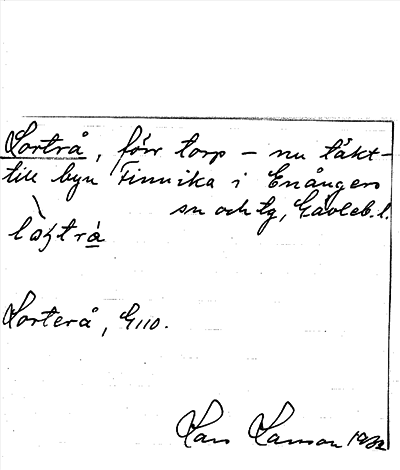 Lortrå, förr torp – nu täkt-
till byn Finnika i Enångers
sn och tg, Gävleb. l.
Lorterå, G110.
Lars Larsson